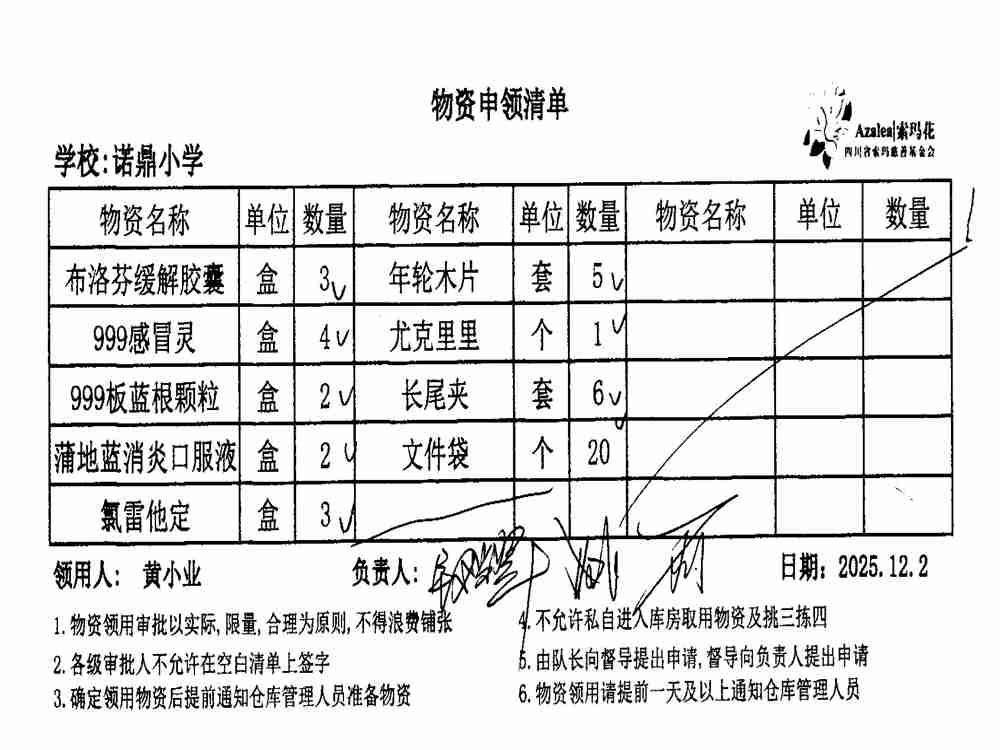 物资申领清单
Azalea|索玛花
四川省索玛慈善基金会
学校:诺鼎小学
物资名称 单位 数量 物资名称 单位 数量 物资名称 单位 数量
布洛芬缓解胶囊 盒 3 年轮木片 套 5
999感冒灵 盒 4 尤克里里 个 1
999板蓝根颗粒 盒 2 长尾夹 套 6
蒲地蓝消炎口服液 盒 2 文件袋 个 20
氯雷他定 盒 3
领用人: 黄小业 负责人: 日期: 2025.12.2
1.物资领用审批以实际,限量,合理为原则,不得浪费铺张
2.各级审批人不允许在空白清单上签字
3.确定领用物资后提前通知仓库管理人员准备物资
4.不允许私自进入库房取用物资及挑三拣四
5.由队长向督导提出申请,督导向负责人提出申请
6.物资领用请提前一天及以上通知仓库管理人员